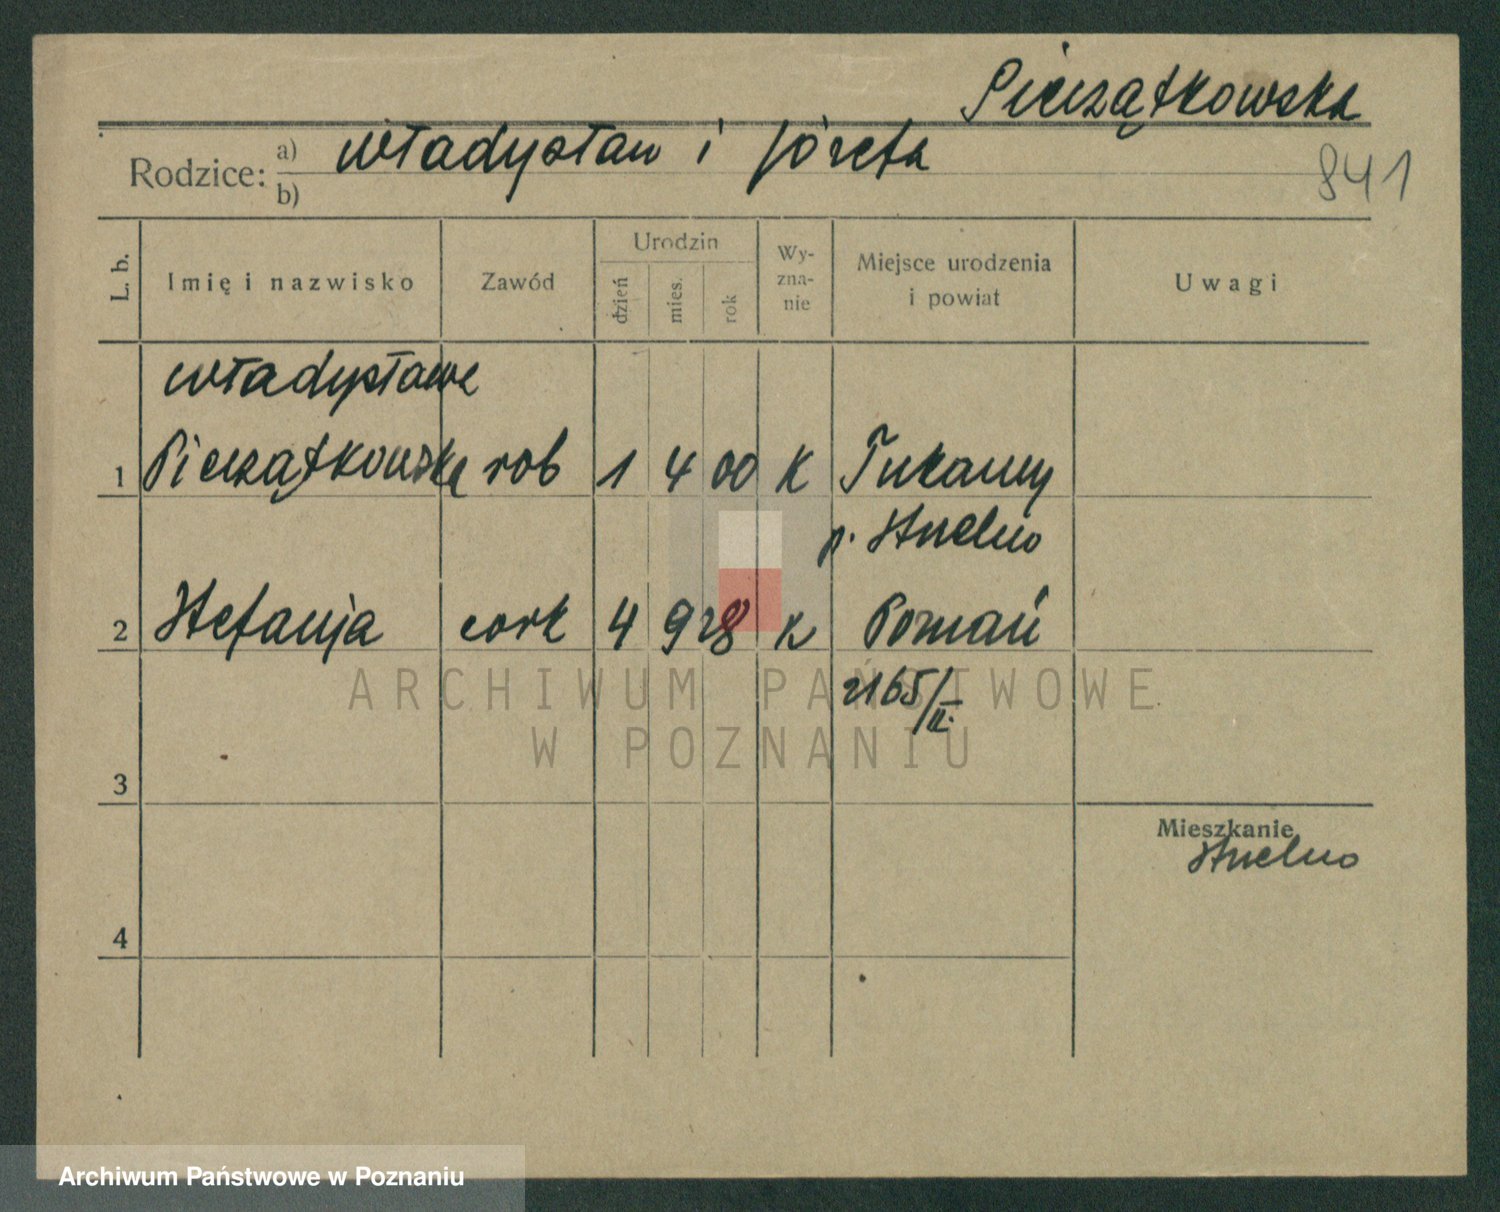 Pieczątkowska
Rodzice: a) Władysław i Józefa
b)
841
L. b.
Imię i nazwisko
Zawód
Urodzin
dzień
mies.
rok
Wy-
zna-
nie
Miejsce urodzenia
i powiat
Uwagi
Władysława
1 Pieczątkowska rob 1 4 00 K
p. Strzelno
2 Stefanja cork 4 9 28 K Poznań
2165/II.
ARCHIWUM PAŃSTWOWE
W POZNANIU
3
Mieszkanie
Strzelno
4
Archiwum Państwowe w Poznaniu